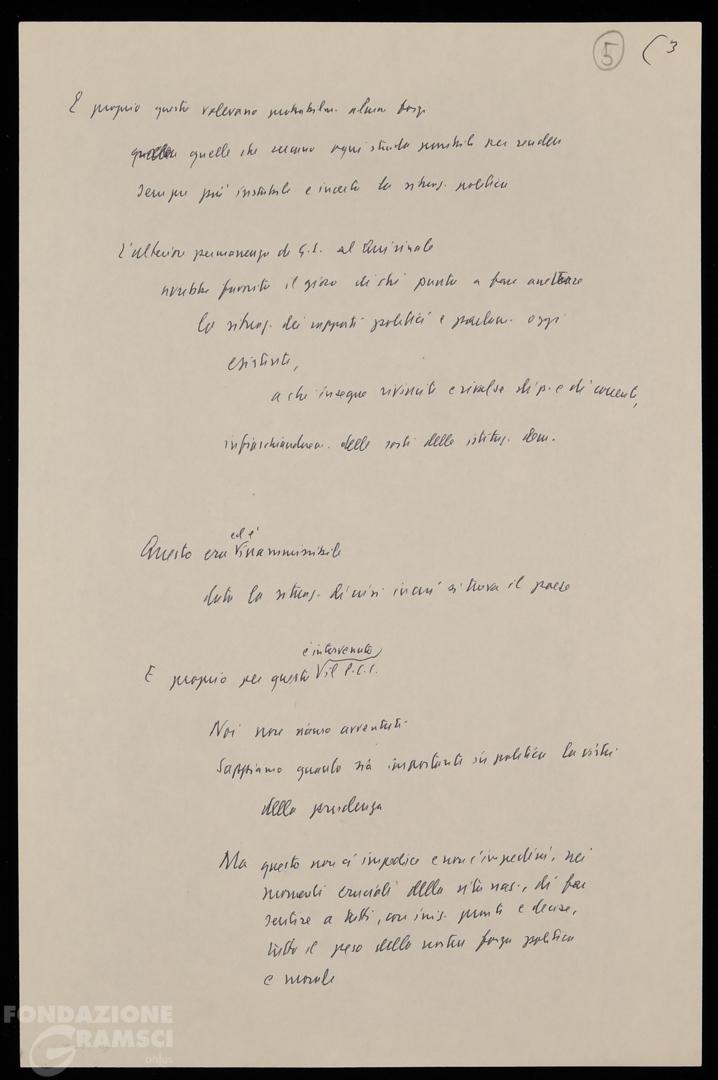 5 (3
E proprio questo volevano probabilm. alcune forze
quelle che cercano ogni strada possibile per rendere
sempre più instabile e incerta la situaz. politica
L'ulteriore permanenza di G.L. al Quirinale
avrebbe favorito il gioco di chi punta a fare
la situaz. dei rapporti politici e parlam. oggi
esistente,
a chi insegue rivincite e rivalse di p. e di correnti,
infischiandosene delle sorti delle istituz. dem.
Questo era ed è inammissibile
data la situaz. di crisi in cui si trova il paese
E proprio per questo è intervenuto il P.C.I.
Noi non siamo avventati
Sappiamo quanto sia importante in politica la virtù
della prudenza
Ma questo non ci impedisce e non c'impedirà, nei
momenti cruciali della vita naz., di far
sentire a tutti, con iniz. pronte e decise,
tutto il peso della nostra forza politica
e morale
FONDAZIONE
GRAMSCI
onlus